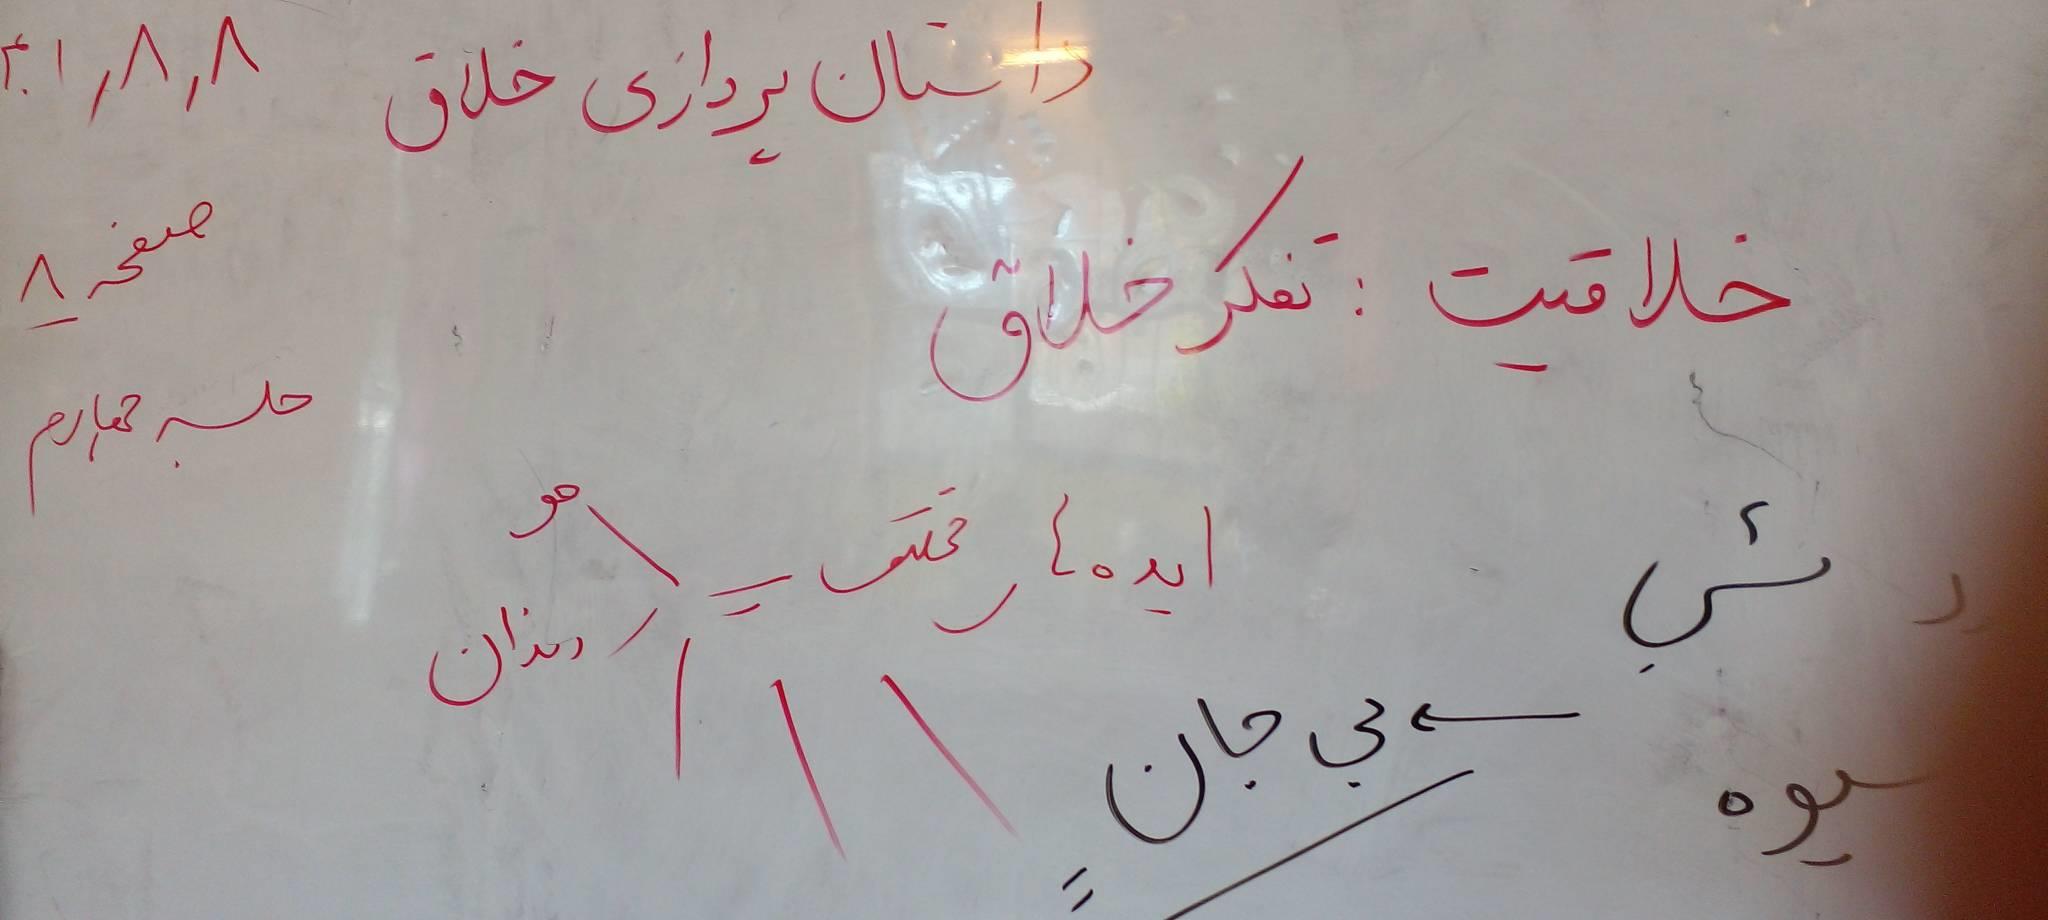 داستان پردازی خلاق ۴۰۱٫۸٫۸
صفحه ۸
خلاقیت : تفکر خلاق
جلسه چهارم
ایده های مختلف =
مو
دندان
بی جان
میوه